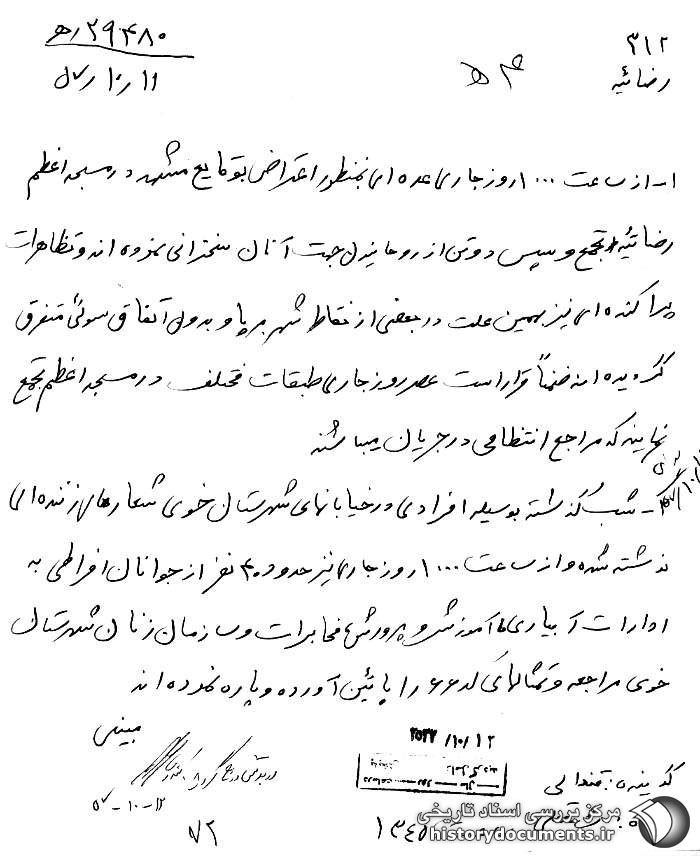 ۳۱۲
۲۹۴۸۰ /ﻫ
رضائیه
۱۱ /۱۰ /۵۷
۱- از ساعت ۱۰۰۰ روز جاری عده ای بمنظور اعتراض بوقایع مشهد در مسجد اعظم
رضائیه تجمع و سپس دو تن از روحانیون جهت آنان سخنرانی نموده اند و تظاهرات
پراکنده ای نیز بهمین علت در بعضی از نقاط شهر برپا و بدون اتفاق سوئی متفرق
گردیده اند ضمناً قرار است عصر روز جاری طبقات مختلف در مسجد اعظم تجمع
نمایند که مراجع انتظامی در جریان میباشند
۲- شب گذشته بوسیله افرادی در خیابانهای شهرستان خوی شعارهای زننده ای
نوشته شده و از ساعت ۱۰۰۰ روز جاری نیز حدود ۴۰ نفر از جوانان افراطی به
ادارات آبیاری آموزش و پرورش مخابرات و سازمان زنان شهرستان
خوی مراجعه و تمثالهای را پائین آورده و پاره نموده اند
مبینی
۲۵۳۷/۱۰/۱۲
گیرنده:
۵۷-۱۰-۱۲
۷۲
مرکز بررسی اسناد تاریخی
historydocuments.ir